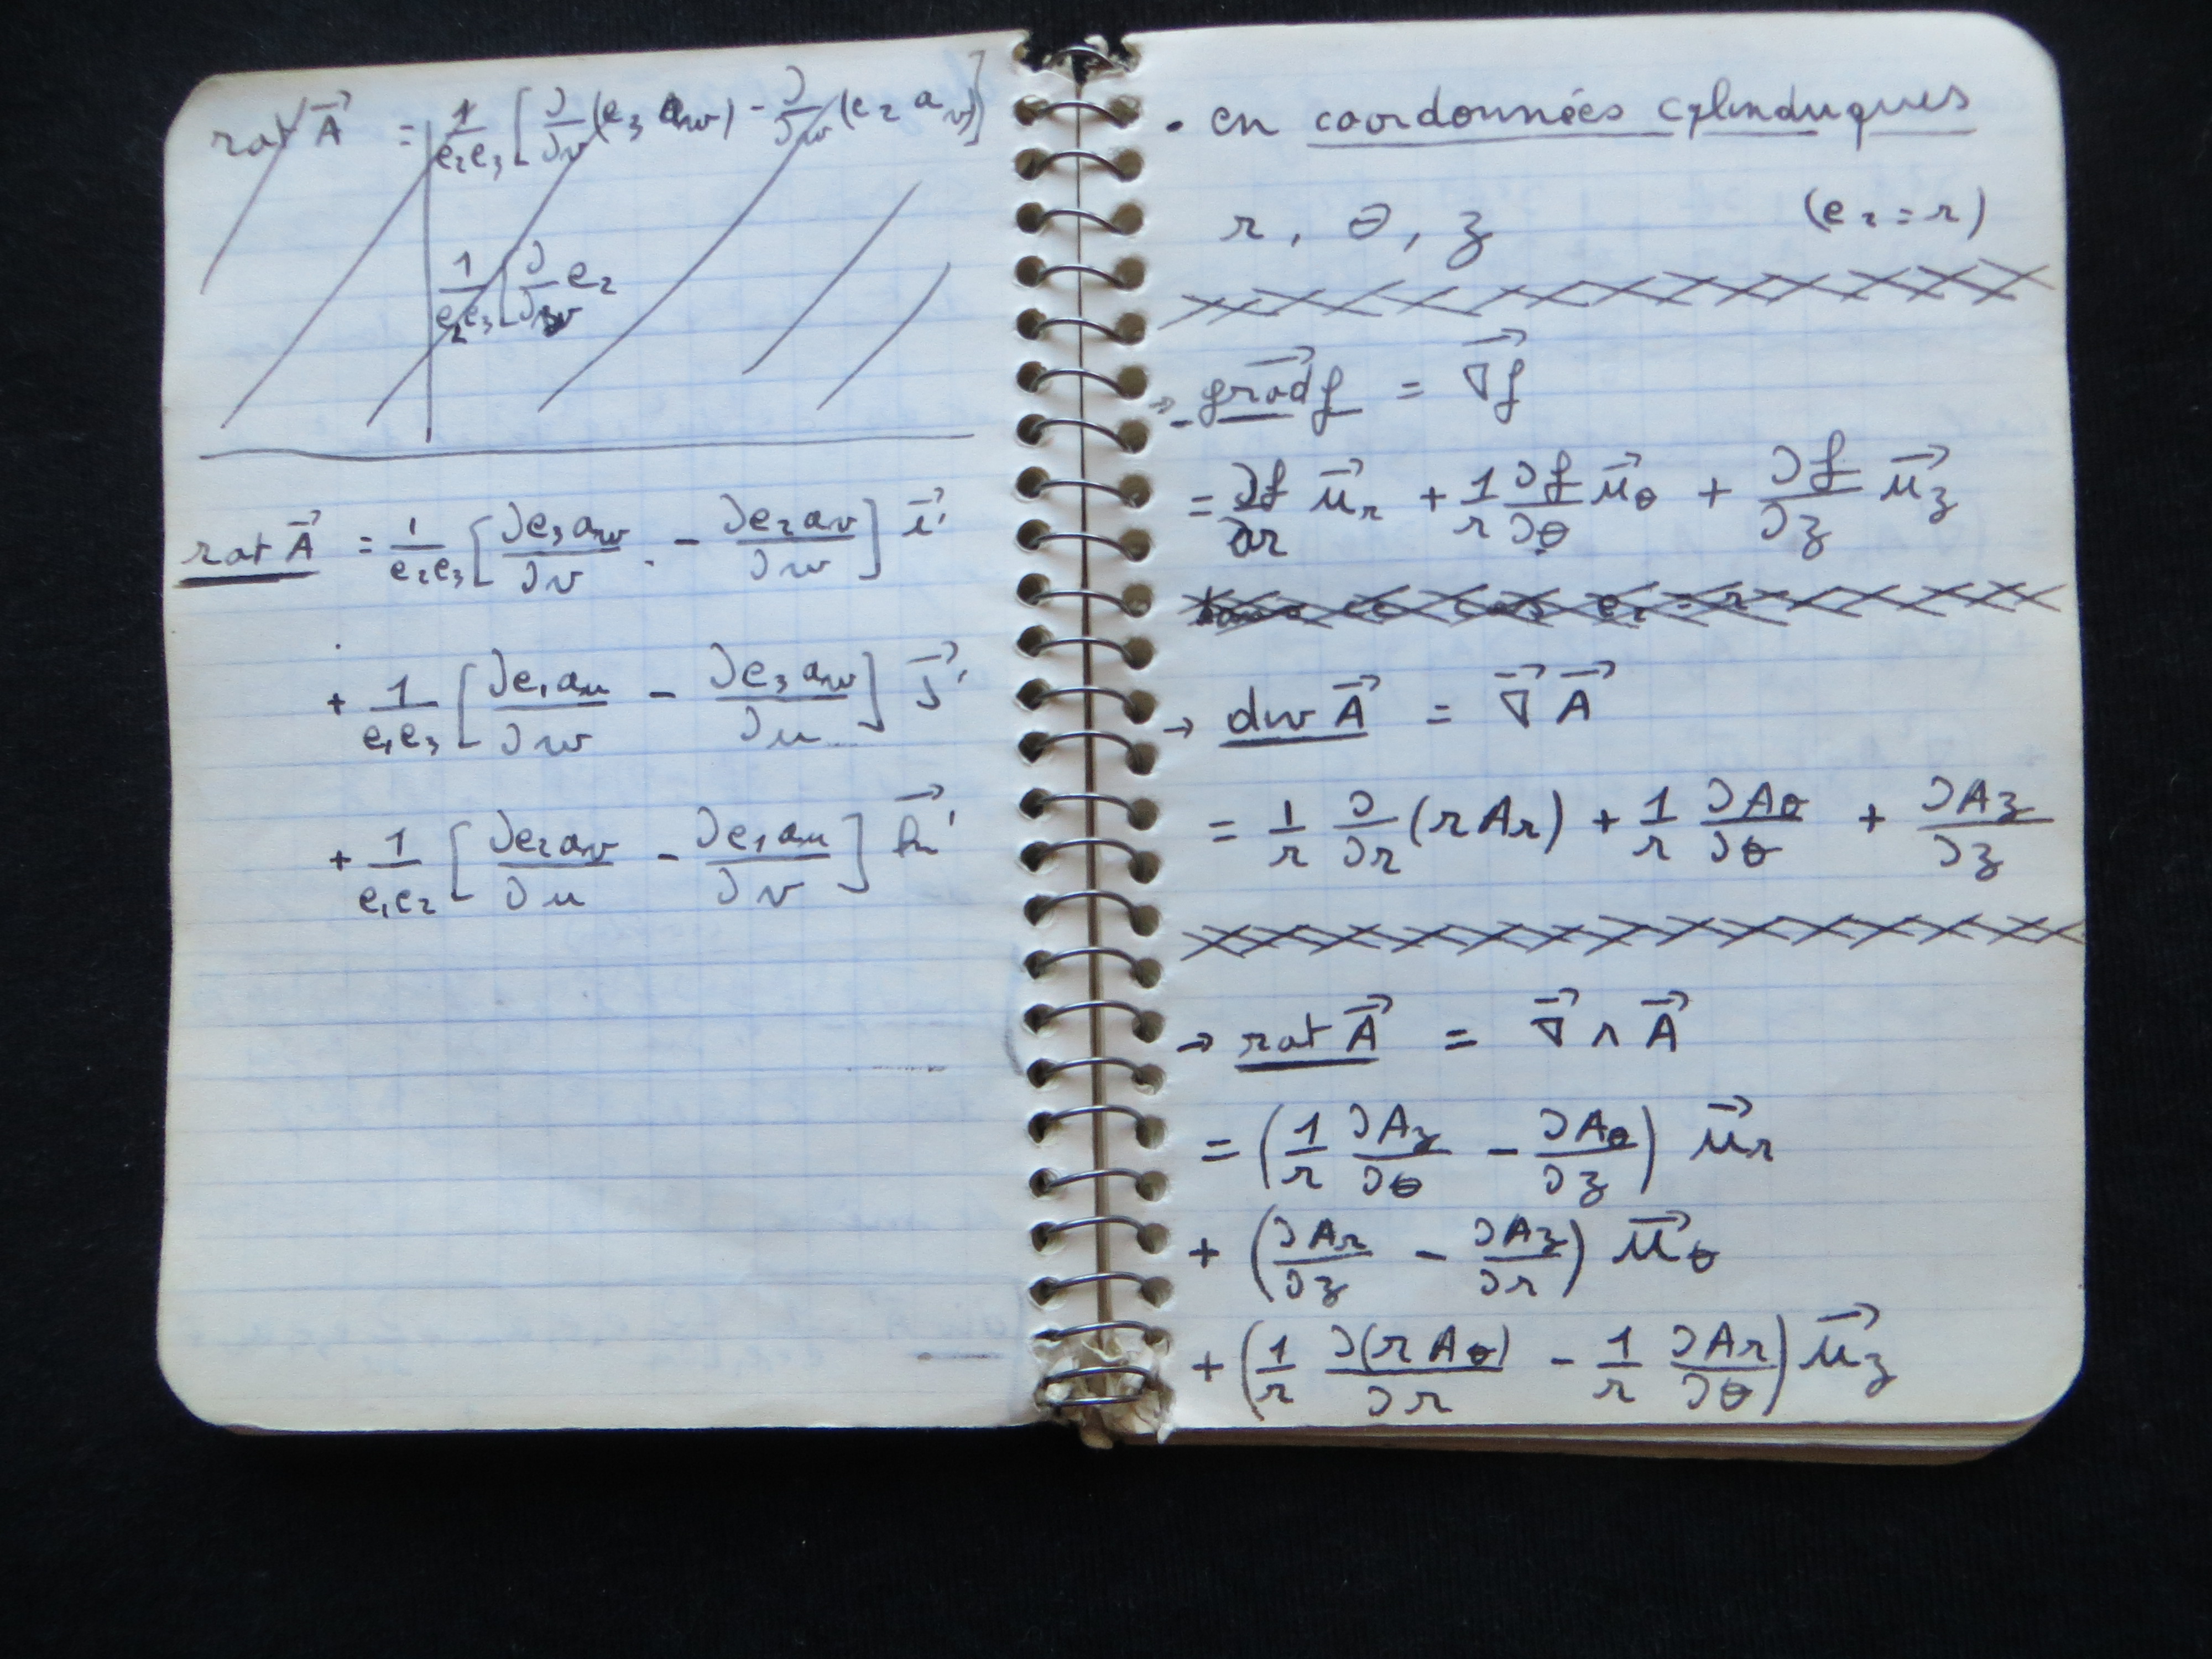 rot A⃗ = 1/(e₂e₃) [∂/∂v (e₃ a_w) - ∂/∂w (e₂ a_v)]
1/(e₂e₃) [∂/∂w e₂
rot A⃗ = 1/(e₂e₃) [∂e₃a_w/∂v - ∂e₂a_v/∂w] i⃗'
+ 1/(e₁e₃) [∂e₁a_u/∂w - ∂e₃a_w/∂u] j⃗'
+ 1/(e₁e₂) [∂e₂a_v/∂u - ∂e₁a_u/∂v] k⃗'
• en coordonnées cylindriques
r, θ, z (e₂ = r)
→ grad⃗ f = ∇⃗f
= ∂f/∂r u⃗_r + 1/r ∂f/∂θ u⃗_θ + ∂f/∂z u⃗_z
e₂ = r
→ div A⃗ = ∇⃗ A⃗
= 1/r ∂/∂r (r A_r) + 1/r ∂A_θ/∂θ + ∂A_z/∂z
→ rot A⃗ = ∇⃗ ∧ A⃗
= (1/r ∂A_z/∂θ - ∂A_θ/∂z) u⃗_r
+ (∂A_r/∂z - ∂A_z/∂r) u⃗_θ
+ (1/r ∂(r A_θ)/∂r - 1/r ∂A_r/∂θ) u⃗_z